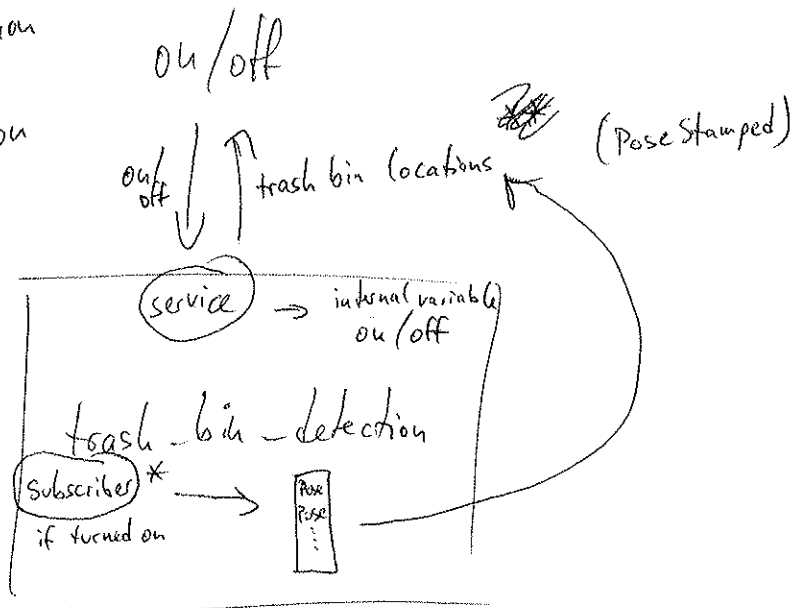 on/off
(PoseStamped)
on/off
trash bin locations
service → internal variable
on/off
trash_bin_detection
Subscriber *
if turned on
Pose
Pose